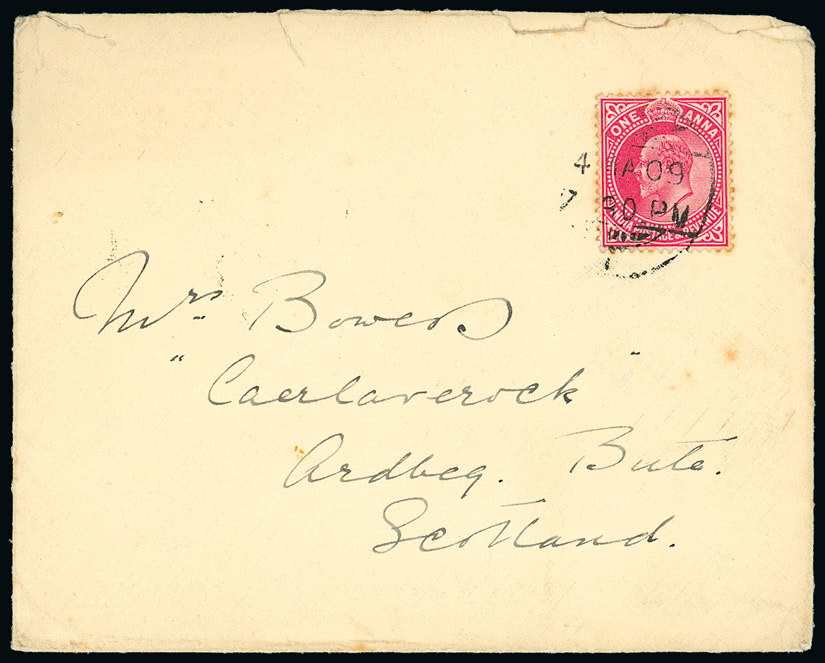 ONE ANNA
4 09
7 PM
Mrs Bowers
"Caerlaverock"
Ardbeg. Bute.
Scotland.